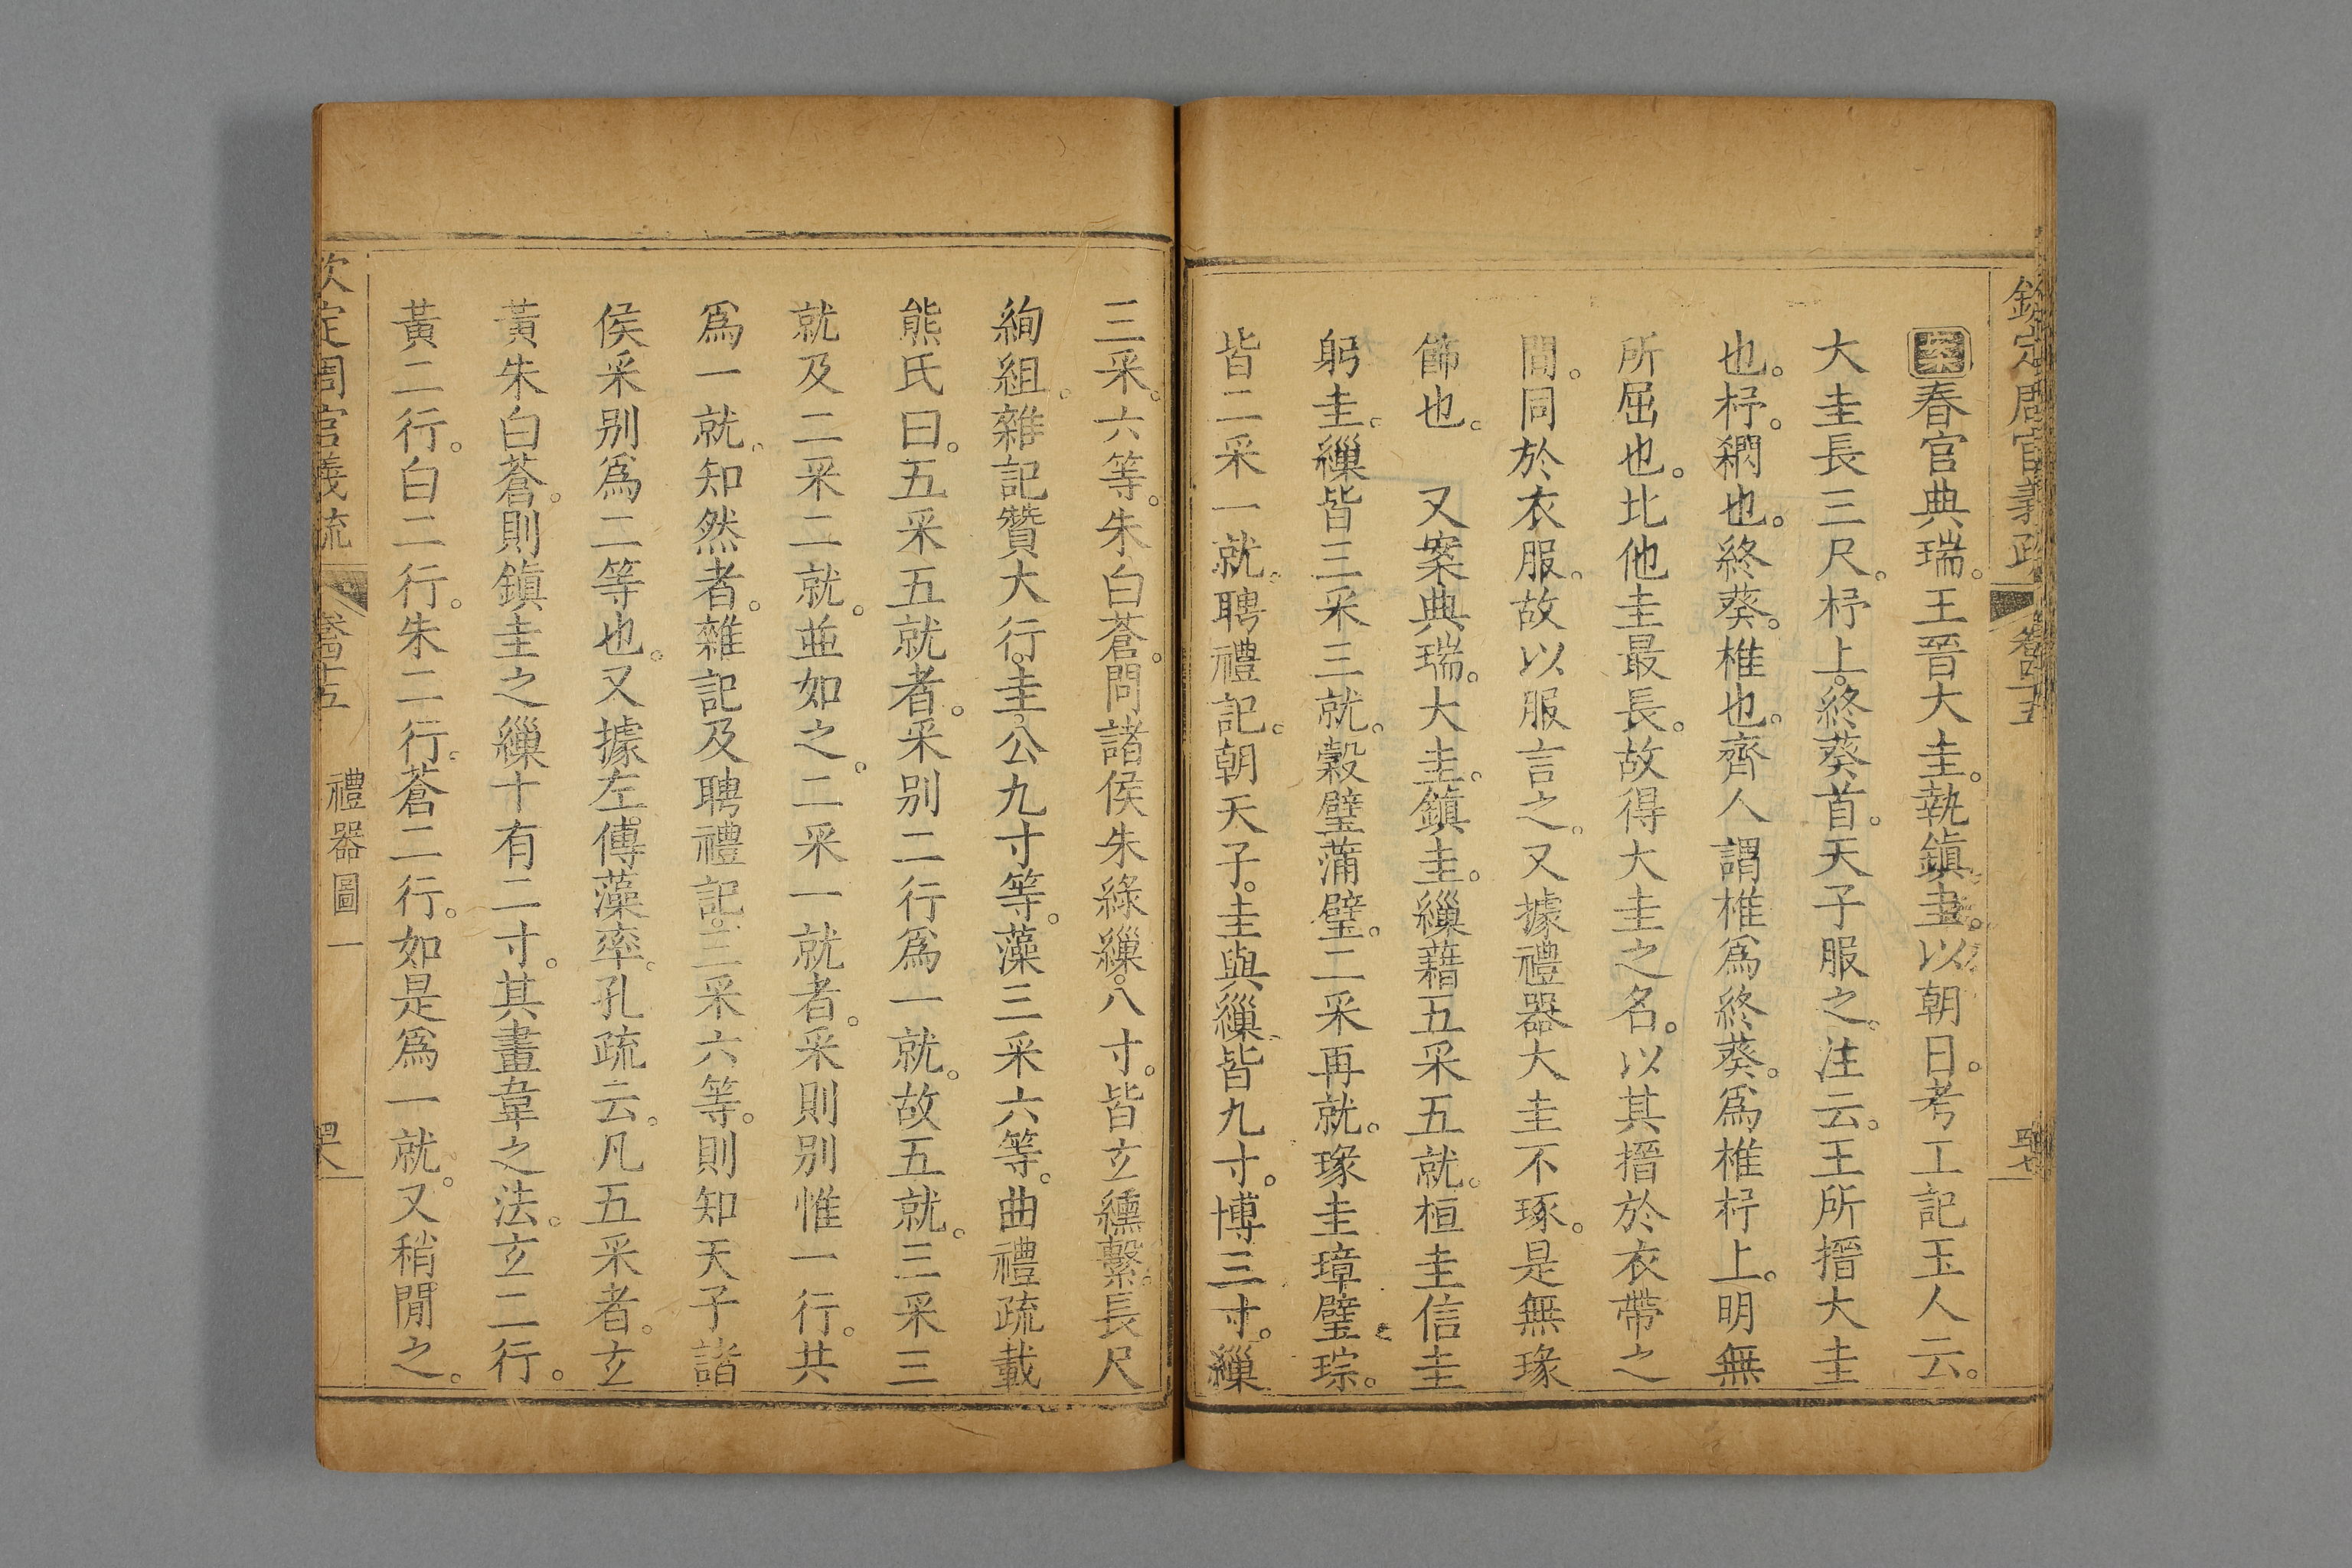 欽定周官義疏 卷四十五
案春官典瑞。王晉大圭。執鎭圭。以朝日。考工記玉人云。
大圭長三尺。杼上。終葵首。天子服之。注云。王所搢大圭
也。杼。䋎也。終葵。椎也。齊人謂椎爲終葵。爲椎杼上。明無
所屈也。比他圭最長。故得大圭之名。以其搢於衣帶之
間。同於衣服。故以服言之。又據禮器大圭不琢。是無瑑
飾也。 又案典瑞。大圭。鎭圭。繅藉五采五就。桓圭信圭
躬圭。繅皆三采三就。穀璧蒲璧。二采再就。瑑圭璋璧琮。
皆二采一就。聘禮記。朝天子。圭與繅。皆九寸。博三寸。繅
三采。六等。朱白蒼。問諸侯朱綠繅。八寸。皆玄纁繫。長尺
絢組。雜記贊大行。圭。公九寸等。藻三采六等。曲禮疏載
熊氏曰。五采五就者。采别二行爲一就。故五就。三采三
就及二采二就。並如之。二采一就者。采則别惟一行。共
爲一就。知然者。雜記及聘禮記。三采六等。則知天子諸
侯采别爲二等也。又據左。傳藻率。孔疏云。凡五采者。玄
黃朱白蒼。則鎭圭之繅十有二寸。其畫韋之法。玄二行。
黃二行。白二行。朱二行。蒼二行。如是爲一就。又稍閒之。
欽定周官義疏 卷四十五 禮器圖一